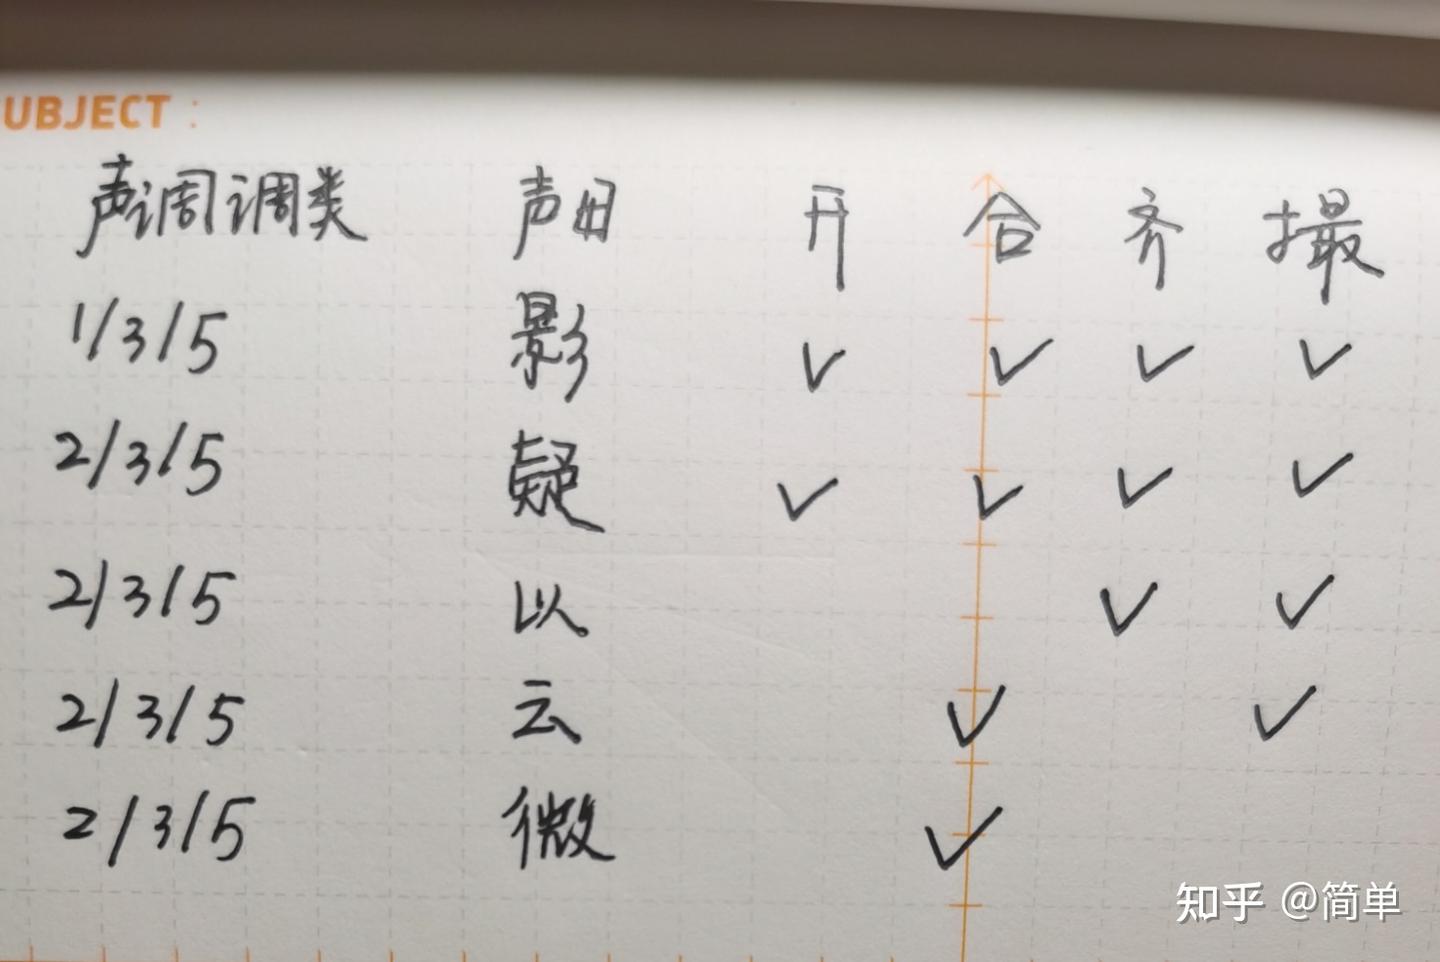 SUBJECT :
声调调类 声母 开 合 齐 撮
1/3/5 影 ✓ ✓ ✓ ✓
2/3/5 疑 ✓ ✓ ✓ ✓
2/3/5 以 ✓ ✓
2/3/5 云 ✓ ✓
2/3/5 微 ✓
知乎 @简单